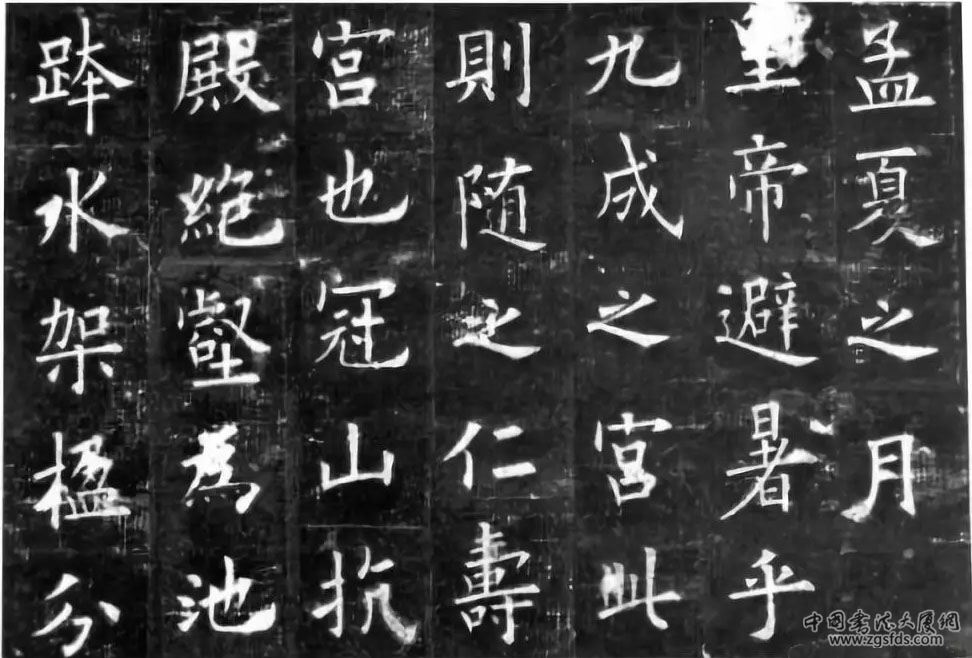 孟夏之月
皇帝避暑乎
九成之宮此
則随之仁壽
宮也冠山抗
殿絕壑為池
跨水架楹分
中国书法大展網
www.zgsfds.com